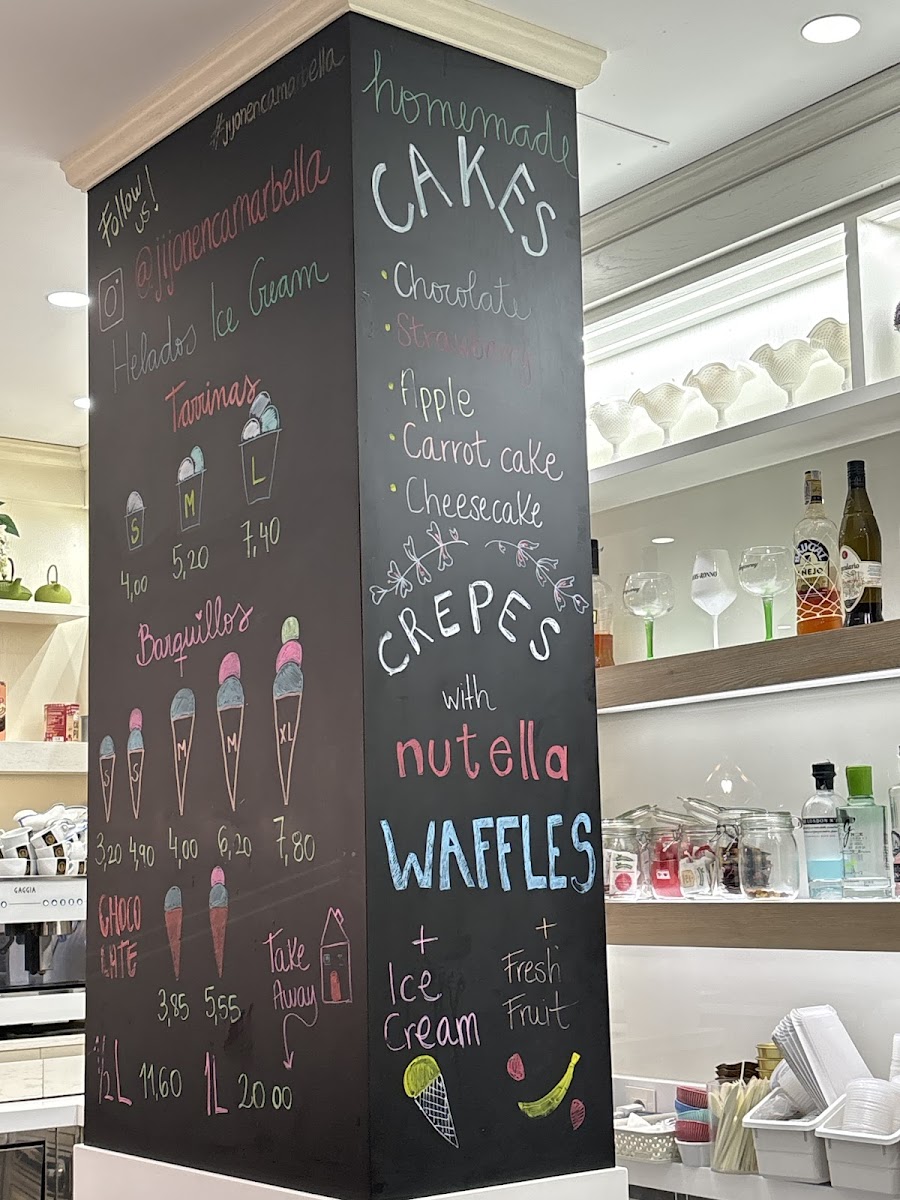 #jijonencamarbella
Follow
us!
@jijonencamarbella
Helados Ice Cream
Tarrinas
S M L
4,00 5,20 7,40
Barquillos
S S M M XL
3,20 4,90 4,00 6,20 7,80
CHOCO
LATE
3,85 5,55
Take
Away
1/2L 11,60 1L 20 00
homemade
CAKES
• Chocolate
• Strawberry
• Apple
• Carrot cake
• Cheesecake
CREPES
with
nutella
WAFFLES
+ +
Ice Fresh
Cream Fruit
GAGGIA
AÑEJO